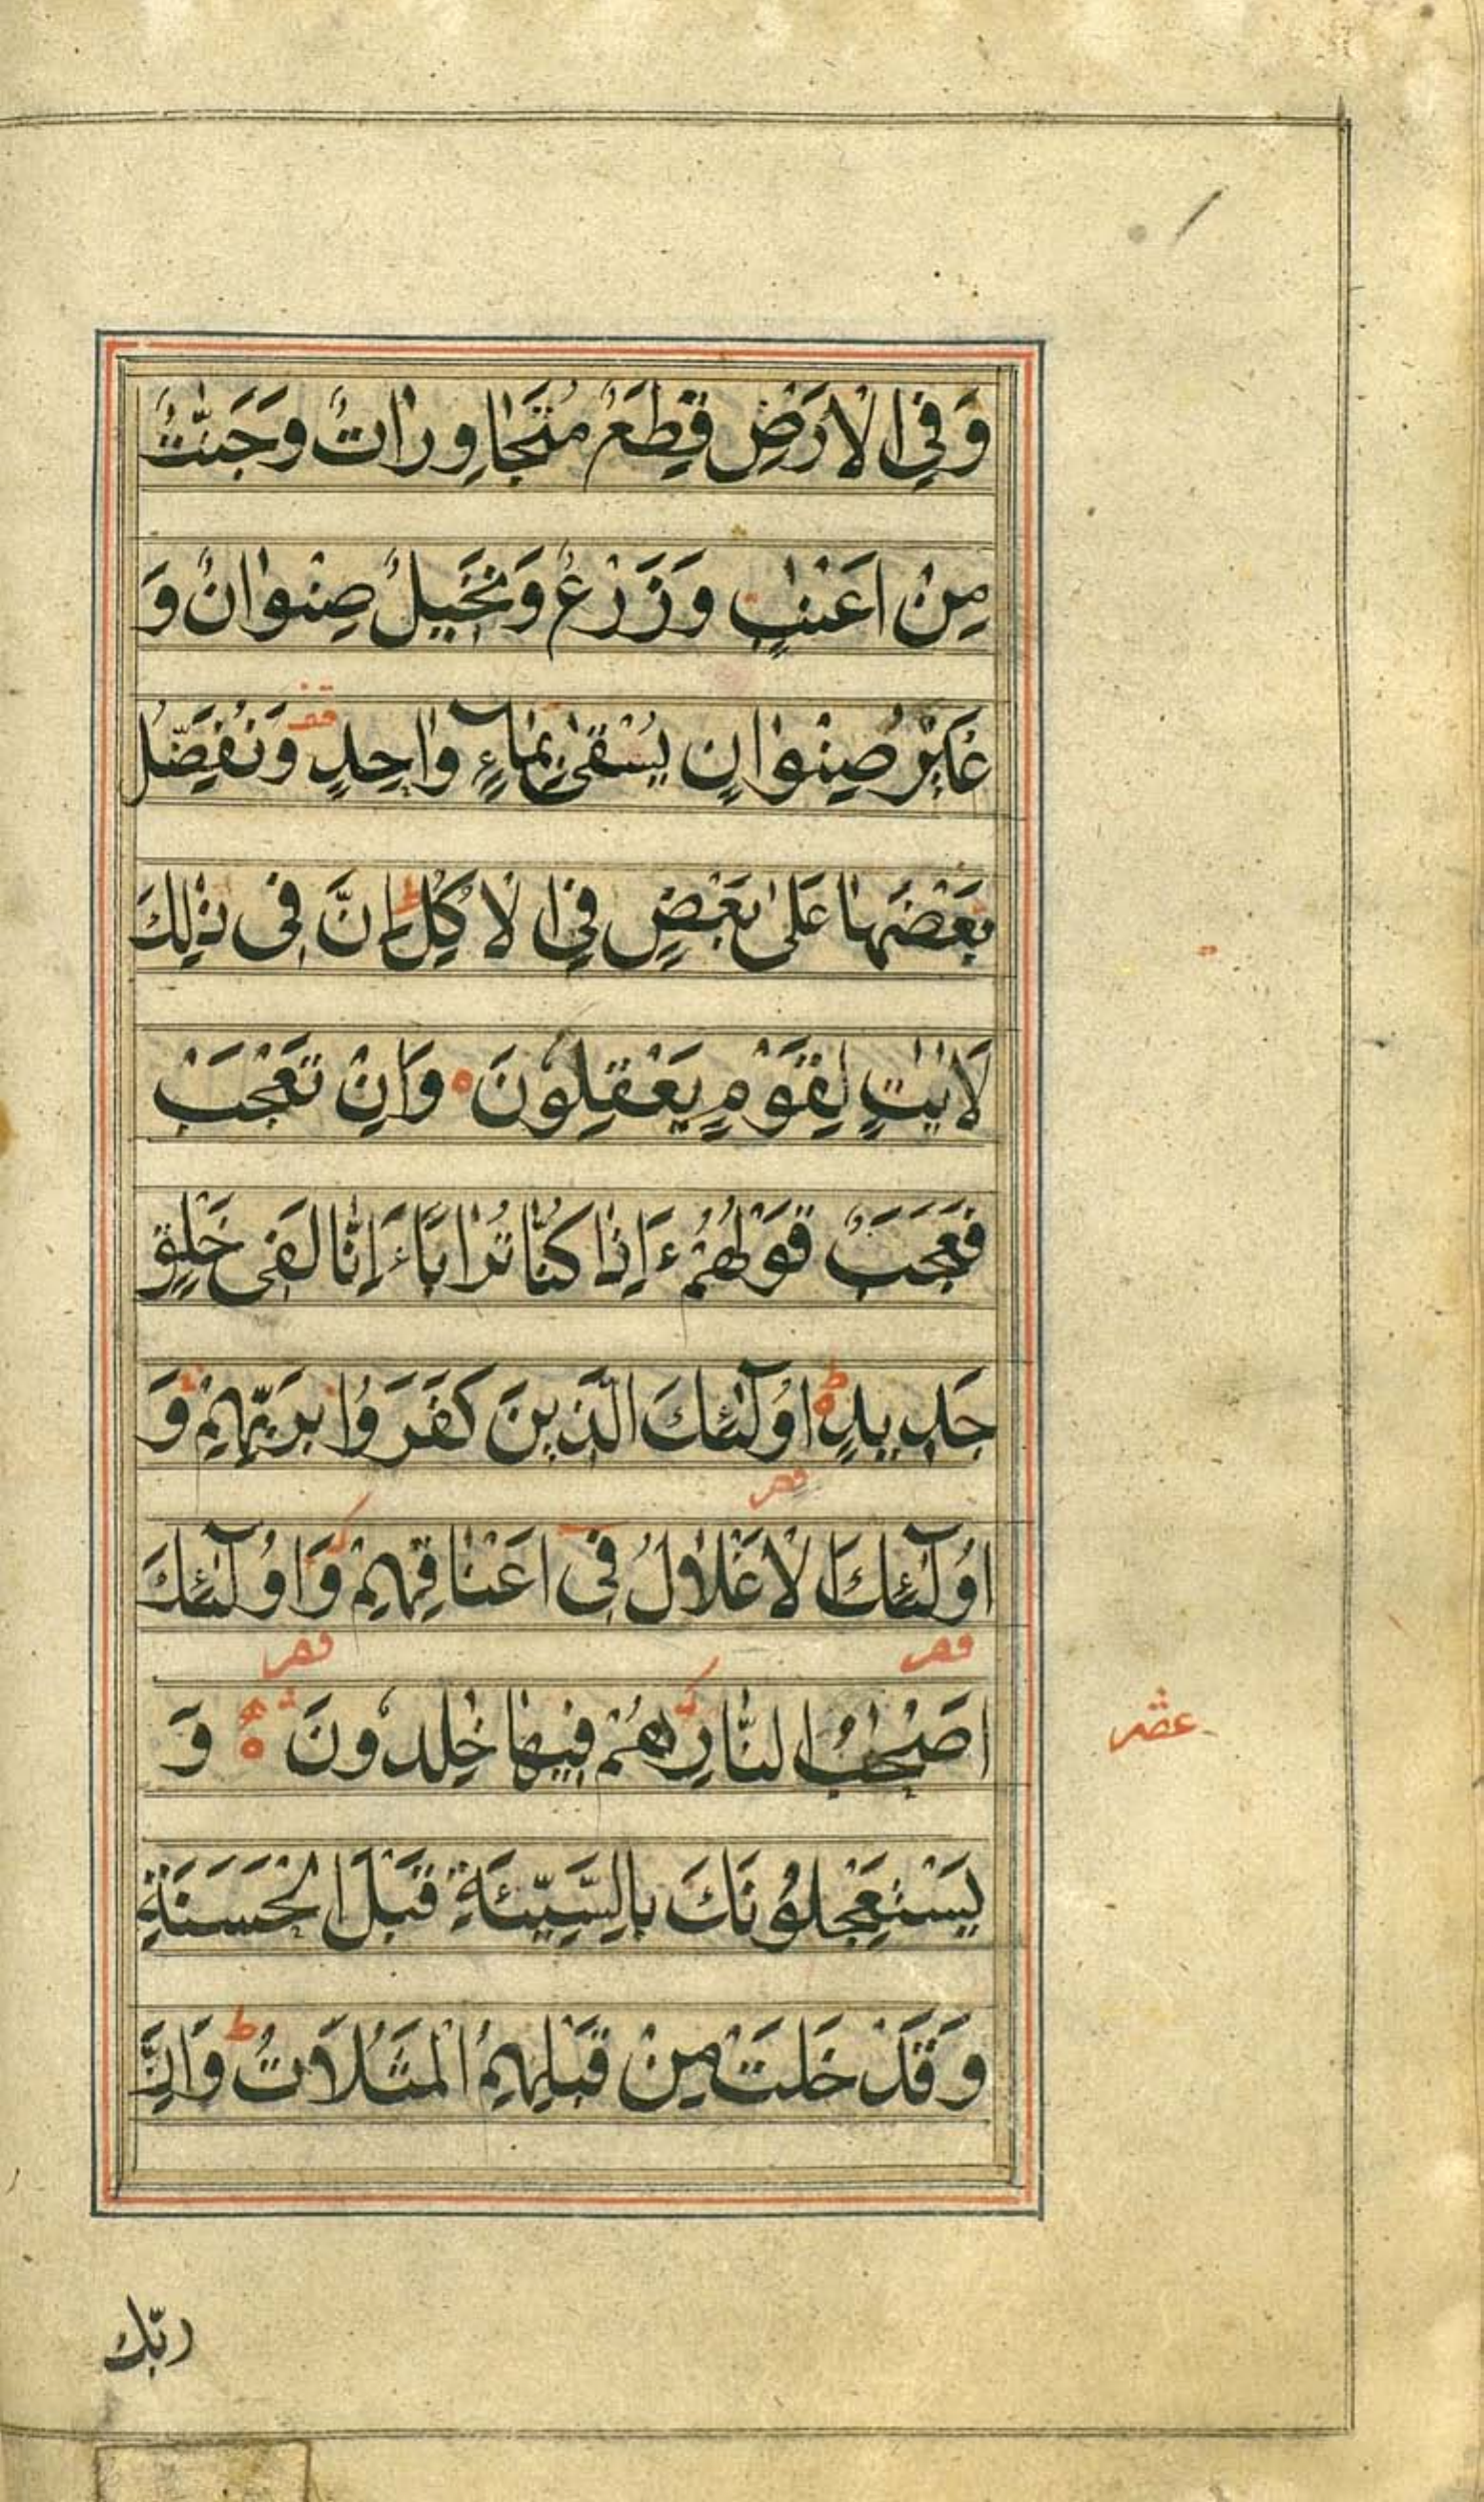 وَفِي الْاَرْضِ قِطَعٌ مُتَجَاوِرَاتٌ وَجَنّٰتٌ
مِنْ اَعْنٰبٍ وَزَرْعٌ وَنَخِيلٌ صِنْوَانٌ وَ
غَيْرُ صِنْوَانٍ يُسْقٰى بِمَاۤءٍ وَاحِدٍ قف وَنُفَضِّلُ
بَعْضَهَا عَلٰى بَعْضٍ فِي الْاُكُلِ ط اِنَّ فِى ذٰلِكَ
لَاٰيٰتٍ لِقَوْمٍ يَعْقِلُونَ ه وَاِنْ تَعْجَبْ
فَعَجَبٌ قَوْلُهُمْ ءَاِذَا كُنَّا تُرَابًا ءَاِنَّا لَفِى خَلْقٍ
جَدِيدٍ ط ه اُولٰۤئِكَ الَّذِينَ كَفَرُوا بِرَبِّهِمْ وَ
اُولٰۤئِكَ الْاَغْلَالُ فِى اَعْنَاقِهِمْ وَاُولٰۤئِكَ
اَصْحٰبُ النَّارِ هُمْ فِيهَا خٰلِدُونَ ه وَ
عشر
يَسْتَعْجِلُونَكَ بِالسَّيِّئَةِ قَبْلَ الْحَسَنَةِ
وَقَدْ خَلَتْ مِنْ قَبْلِهِمُ الْمَثُلَاتُ ط وَاِنَّ
ربّك